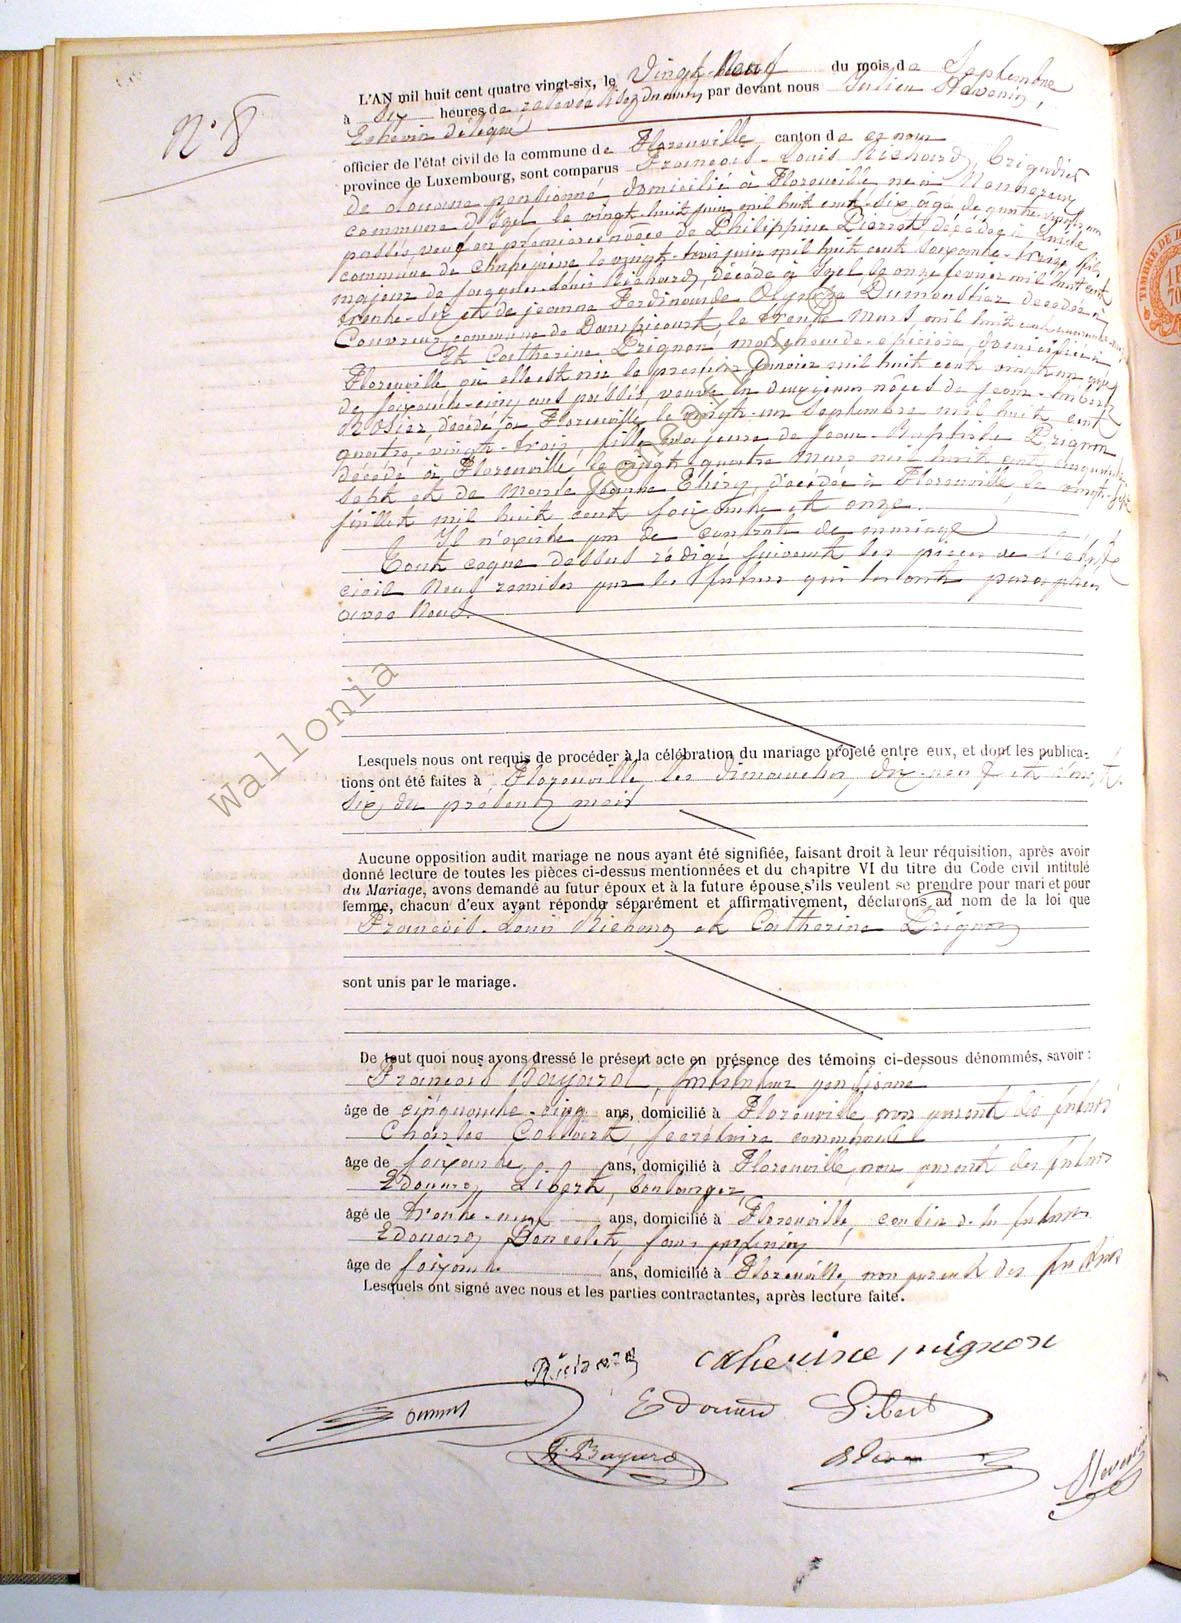 N° 8
L'AN mil huit cent quatre vingt-six, le Vingt-Neuf du mois de Septembre
à six heures de relevée par devant nous Julien Stévenin,
Echevin délégué
officier de l'état civil de la commune de Florenville canton de
province de Luxembourg, sont comparus François-Louis Richard, brigadier
de douane pensionné domicilié à Florenville né à
commune d'Izel le vingt-huit juin mil huit cent-six, âgé de quatre-vingts ans
passés, veuf en premières noces de Philippine Pierrot décédée à
commune de Chassepierre le vingt-trois juin mil huit cent soixante-treize, fils
majeur de Jacques-Louis Richard, décédé à Izel le onze février mil huit cent
trente-six et de jeanne Ferdinande Dumoustier décédée à
Couvreux commune de Dampicourt, le trente Mars mil huit cent
Et Catherine Prignon, marchande-épicière, domiciliée à
Florenville où elle est née le premier janvier mil huit cent vingt un âgée
de soixante-cinq ans passés, veuve en deuxièmes noces de Jean-
Rosier, décédé à Florenville le vingt-un Septembre mil huit cent
quatre-vingt-trois, fille majeure de Jean-Baptiste Prignon
décédé à Florenville, le vingt-quatre Mars mil huit cent cinquante
sept et de Marie Jeanne Thiry, décédée à Florenville le vingt-
juillet mil huit cent soixante et onze.
Il n'existe pas de contrat de mariage
Tout ce que dessus rédigé suivant les pièces de l'état
civil Nous remises par les futurs qui les ont paraphées
avec Nous.
Genedoc
Wallonia
Lesquels nous ont requis de procéder à la célébration du mariage projeté entre eux, et dont les publica-
tions ont été faites à Florenville les dimanches, dix-neuf et vingt-
six du présent mois
Aucune opposition audit mariage ne nous ayant été signifiée, faisant droit à leur réquisition, après avoir
donné lecture de toutes les pièces ci-dessus mentionnées et du chapitre VI du titre du Code civil intitulé
du Mariage, avons demandé au futur époux et à la future épouse s'ils veulent se prendre pour mari et pour
femme, chacun d'eux ayant répondu séparément et affirmativement, déclarons au nom de la loi que
François-Louis Richard et Catherine Prignon
sont unis par le mariage.
De tout quoi nous avons dressé le présent acte en présence des témoins ci-dessous dénommés, savoir :
François Bayard, instituteur pensionné
âge de cinquante-cinq ans, domicilié à Florenville non parent des futurs
Charles Colbert, secrétaire communal
âge de soixante ans, domicilié à Florenville, non parent des futurs
Edouard Libert, boulanger,
âgé de trente-neuf ans, domicilié à Florenville, cousin de la future
Edouard Poncelet, sans profession
âge de soixante ans, domicilié à Florenville, non parent des futurs
Lesquels ont signé avec nous et les parties contractantes, après lecture faite.
Richard Catherine prignon
Edouard Libert
Bayard
Stévenin